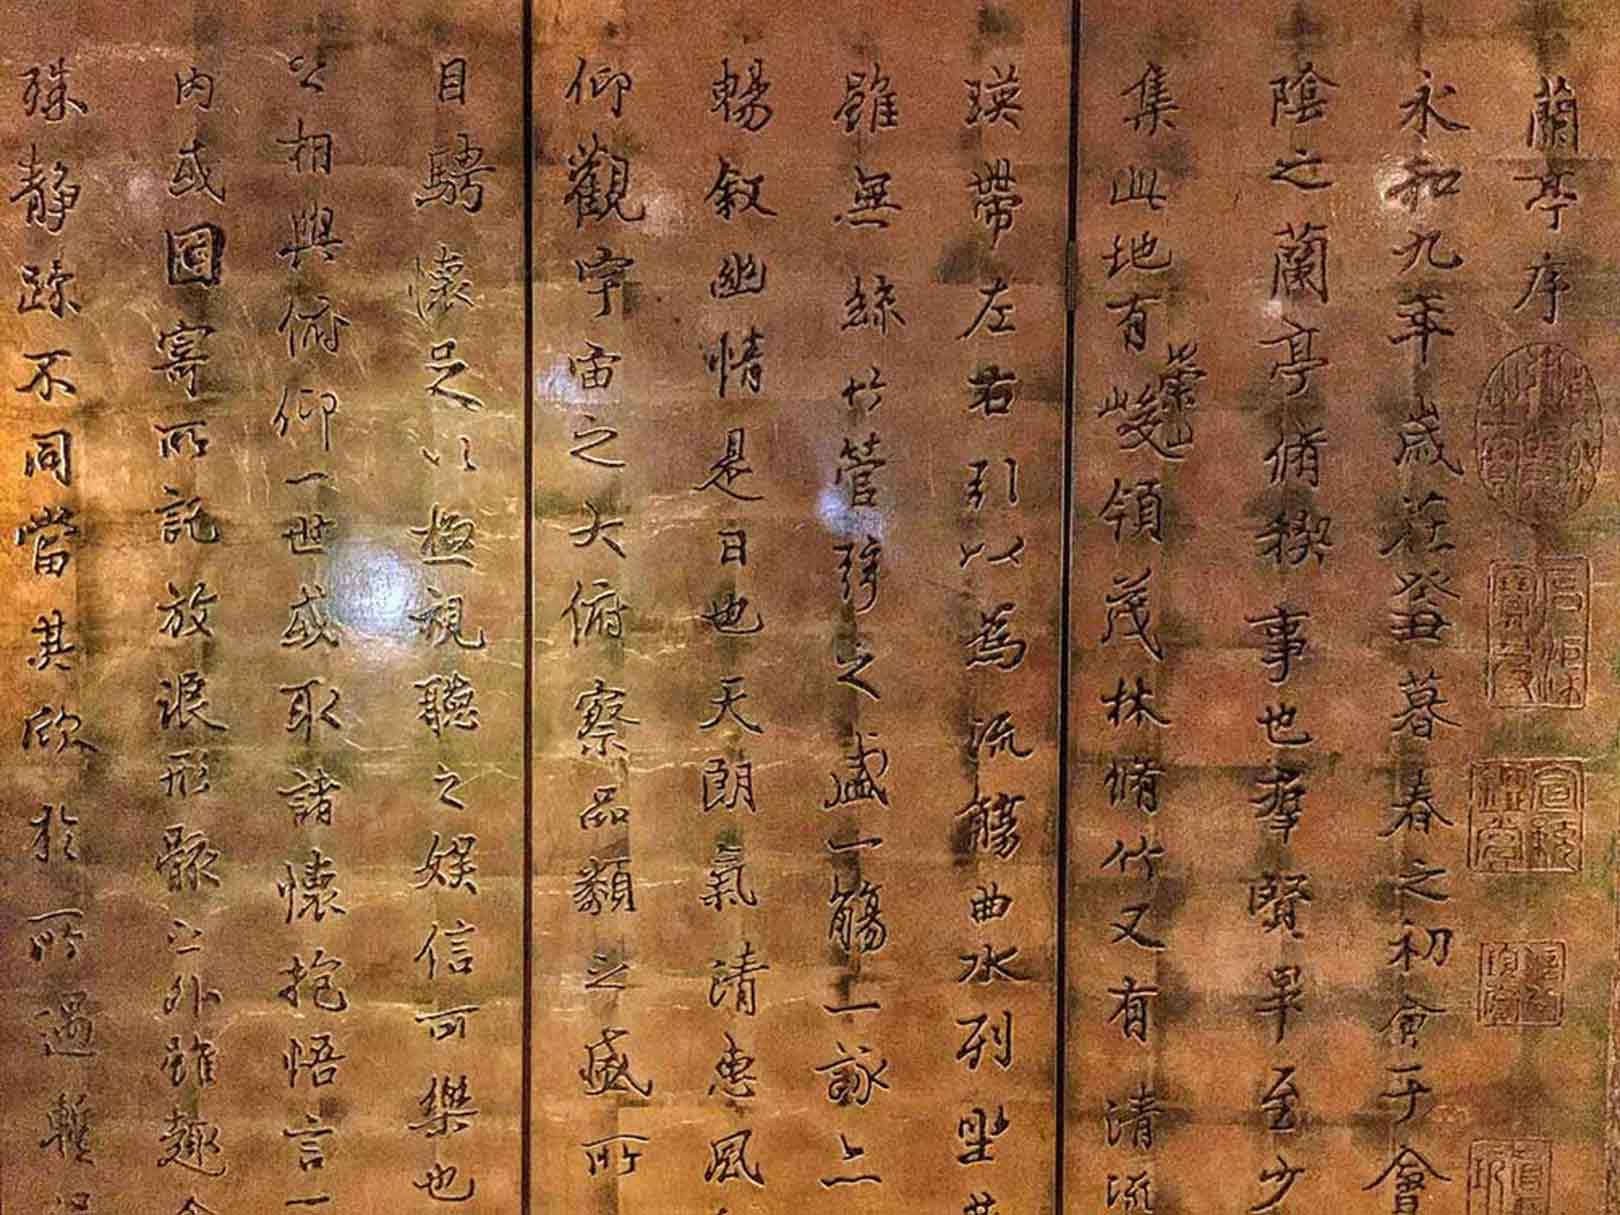 蘭亭序
永和九年歲在癸丑暮春之初會于會
陰之蘭亭脩稧事也羣賢畢至少
集此地有峻領茂林脩竹又有清流
崇山
暎帶左右引以為流觴曲水列坐其
雖無絲竹管弦之盛一觴一詠亦
暢敘幽情是日也天朗氣清惠風
仰觀宇宙之大俯察品類之盛所
目騁懷足以極視聽之娛信可樂也
之相與俯仰一世或取諸懷抱悟言一
內或因寄所託放浪形骸之外雖趣
殊靜躁不同當其欣於所遇暫